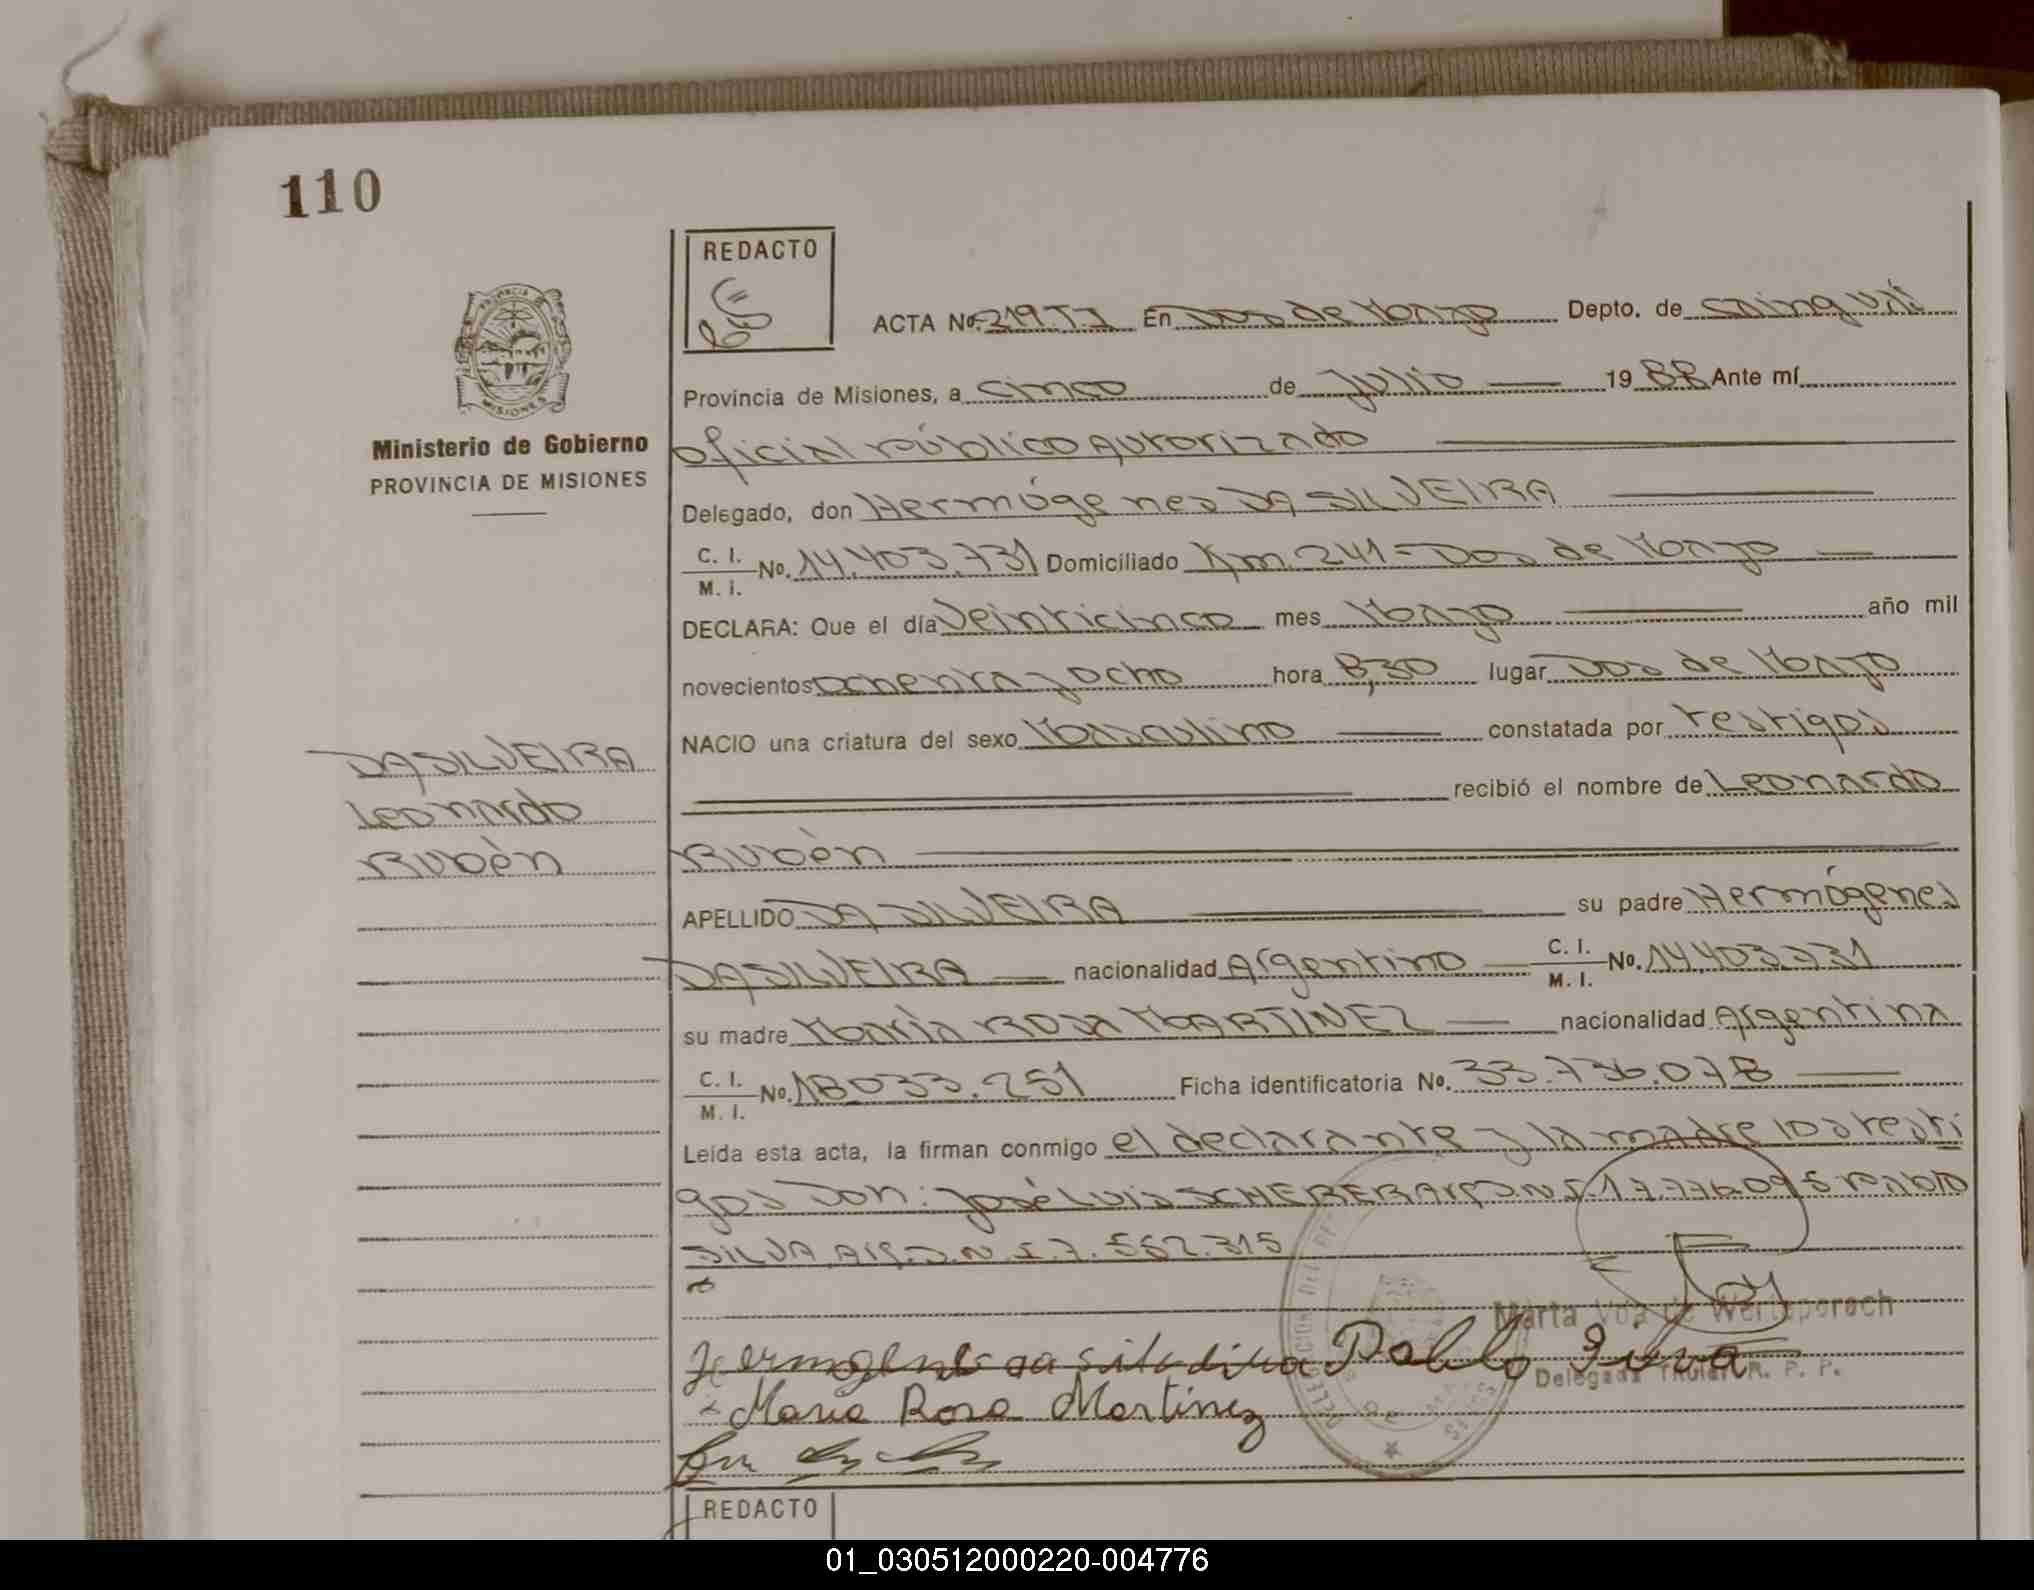 110
REDACTO
ACTA No. 219 TI En Dos de Mayo Depto. de Cainguás
Provincia de Misiones, a cinco de Julio 1988 Ante mí
PROVINCIA DE MISIONES
Oficial Público Autorizado
Ministerio de Gobierno
PROVINCIA DE MISIONES
Delegado, don Hermógenes DA SILVEIRA
C. I. / M. I. No. 14.403.731 Domiciliado Km. 241 - Dos de Mayo
DECLARA: Que el día Veinticinco mes Mayo año mil
novecientos ochenta y ocho hora 8,30 lugar Dos de Mayo
NACIO una criatura del sexo Masculino constatada por testigos
recibió el nombre de Leonardo
Rubén
DA SILVEIRA
Leonardo
Rubèn
APELLIDO DA SILVEIRA su padre Hermógenes
DA SILVEIRA nacionalidad Argentino C. I. / M. I. No. 14.403.731
su madre María Rosa MARTINEZ nacionalidad Argentina
C. I. / M. I. No. 18033.251 Ficha identificatoria No. 33.736.078
Leída esta acta, la firman conmigo el declarante y la madre los testi
gos Don: José Luis SCHERER Arg. D.N.I. 17.776.095 Pablo
SILVA, Arg. D.N.I. 7.562.315
Marta de
Delegada Titular R. P. P.
Pablo Silva
Maria Rosa Martinez
REDACTO
01_030512000220-004776